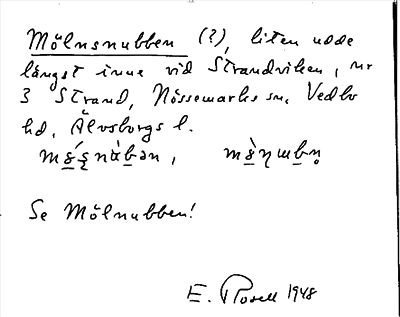 Mölnsnubben (?), liten udde
längst inne vid Strandviken, nr
3 Strand, Nössemarks sn. Vedbo
hd, Älvsborgs l.
Se Mölnubben!
E. Rosell 1948